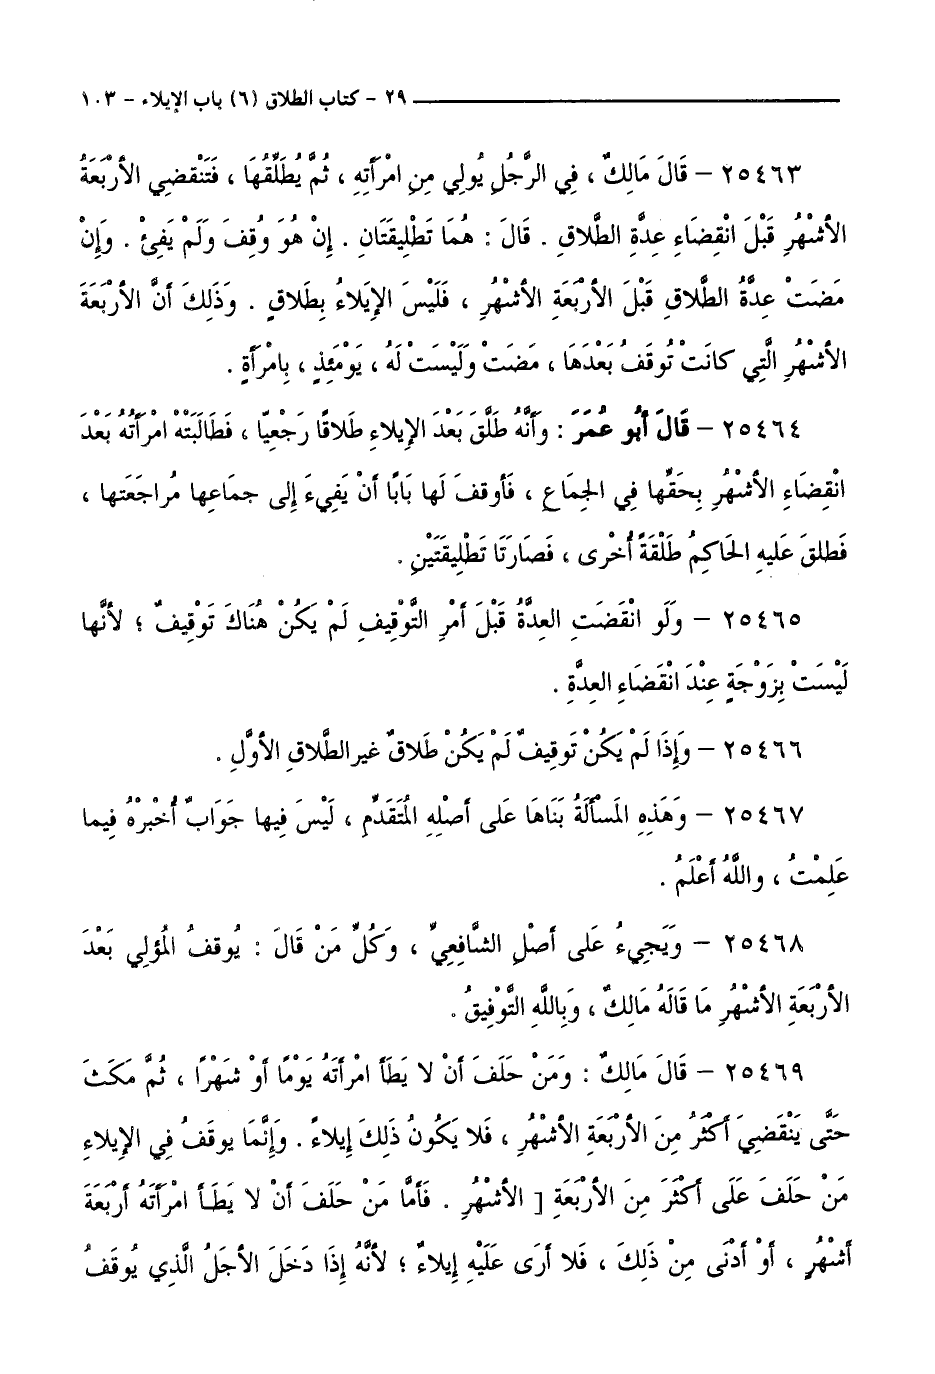 ٢٩ - كتاب الطلاق (٦) باب الإيلاء - ١٠٣
٢٥٤٦٣ - قَالَ مَالِكٌ ، فِي الرَّجُلِ يُولِي مِنِ امْرَأَتِهِ ، ثُمَّ يُطَلِّقُهَا ، فَتَنْقضِي الأَرْبَعَةُ
الأَشْهُرِ قَبْلَ انْقِضَاءِ عِدَّةِ الطَّلاقِ . قَالَ : هُمَا تَطْلِيقَتَانِ . إِنْ هُوَ وُقِفَ وَلَمْ يَفِئْ . وَإِنْ
مَضَتْ عِدَّةُ الطَّلاقِ قَبْلَ الأَرْبَعَةِ الأَشْهُرِ ، فَلَيْسَ الإِيلاءُ بِطَلاقٍ . وَذَلِكَ أَنَّ الأَرْبَعَةَ
الأَشْهُرِ الَّتِي كانَتْ تُوقَفُ بَعْدَهَا ، مَضَتْ وَلَيْسَتْ لَهُ ، يَوْمَئِذٍ ، بِامْرَأَةٍ .
٢٥٤٦٤ - قَالَ أَبُو عُمَرَ : وَأَنَّهُ طَلَّقَ بَعْدَ الإِيلاءِ طَلاقًا رَجْعِيّا ، فَطَالَبَتْه امْرَأَتُهُ بَعْدَ
انْقِضَاءِ الأَشْهُرِ بِحَقِّها فِي الجِمَاعِ ، فَأوقفَ لَها بَابًا أَنْ يَفِيءَ إِلى جماعِها مُراجَعَتها ،
فَطلقَ عَليهِ الحَاكِمُ طَلْقَةً أُخْرى ، فَصَارَتَا تَطْلِيقَتَيْنِ .
٢٥٤٦٥ - وَلَو انْقَضَتِ العِدَّةُ قَبْلَ أَمْرِ التَّوْقِيفِ لَمْ يَكُنْ هُنَاكَ تَوْقِيفٌ ؛ لأَنَّها
لَيْسَتْ بِزَوْجَةٍ عِنْدَ انْقَضَاءِ العِدَّةِ .
٢٥٤٦٦ - وَإِذَا لَمْ يَكُنْ تَوقِيفٌ لَمْ يَكُنْ طَلاقٌ غير الطَّلاقِ الأوَّلِ .
٢٥٤٦٧ - وَهَذِهِ المَسْأَلَةُ بَنَاهَا عَلى أَصْلِهِ المُتَقَدِّمِ ، لَيْسَ فِيها جَوَابٌ أُخْبْرْهُ فِيما
عَلِمْتُ ، واللَّهُ أَعْلَمُ .
٢٥٤٦٨ - وَيَجِيءُ عَلى أَصْلِ الشَّافِعِيِّ ، وَكُلُّ مَنْ قَالَ : يُوقفُ المُؤلِي بَعْدَ
الأَرْبَعَةِ الأَشْهُرِ مَا قَالَهُ مَالِكٌ ، وَبِاللَّهِ التَّوْفِيقُ .
٢٥٤٦٩ - قَالَ مَالِكٌ : وَمَنْ حَلَفَ أَنْ لا يَطَأَ امْرأَتَهُ يَوْمًا أَوْ شَهْرًا ، ثُمَّ مَكَثَ
حَتَّى يَنْقَضِيَ أَكْثَرُ مِنَ الأَرْبَعَةِ الأَشْهُرِ ، فَلا يَكُونُ ذَلِكَ إِيلاءً . وَإِنَّمَا يوقَفُ فِي الإِيلاءِ
مَنْ حَلَفَ عَلَى أَكْثَرَ مِنَ الأَرْبَعَةِ [ الأَشْهُرِ . فَأَمَّا مَنْ حَلَفَ أَنْ لا يَطَأَ امْرأَتَهُ أَرْبَعَةَ
أَشْهُرٍ ، أَوْ أَدْنَى مِنْ ذَلِكَ ، فَلا أَرَى عَلَيْهِ إِيلاءً ؛ لأَنَّهُ إِذَا دَخَلَ الأَجَلُ الَّذِي يُوقَفُ